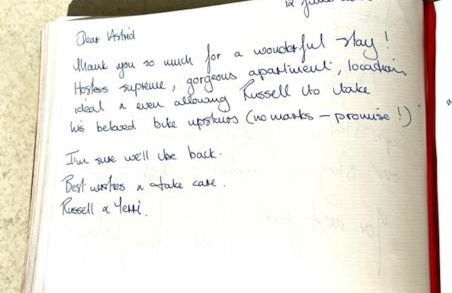 12 June
Dear Astrid
Thank you so much for a wonderful stay!
Hostess supreme, gorgeous apartment, location
ideal & even allowing Russell to take
his beloved bike upstairs (no marks – promise!)
I'm sure we'll be back.
Best wishes & take care.
Russell & Terri.